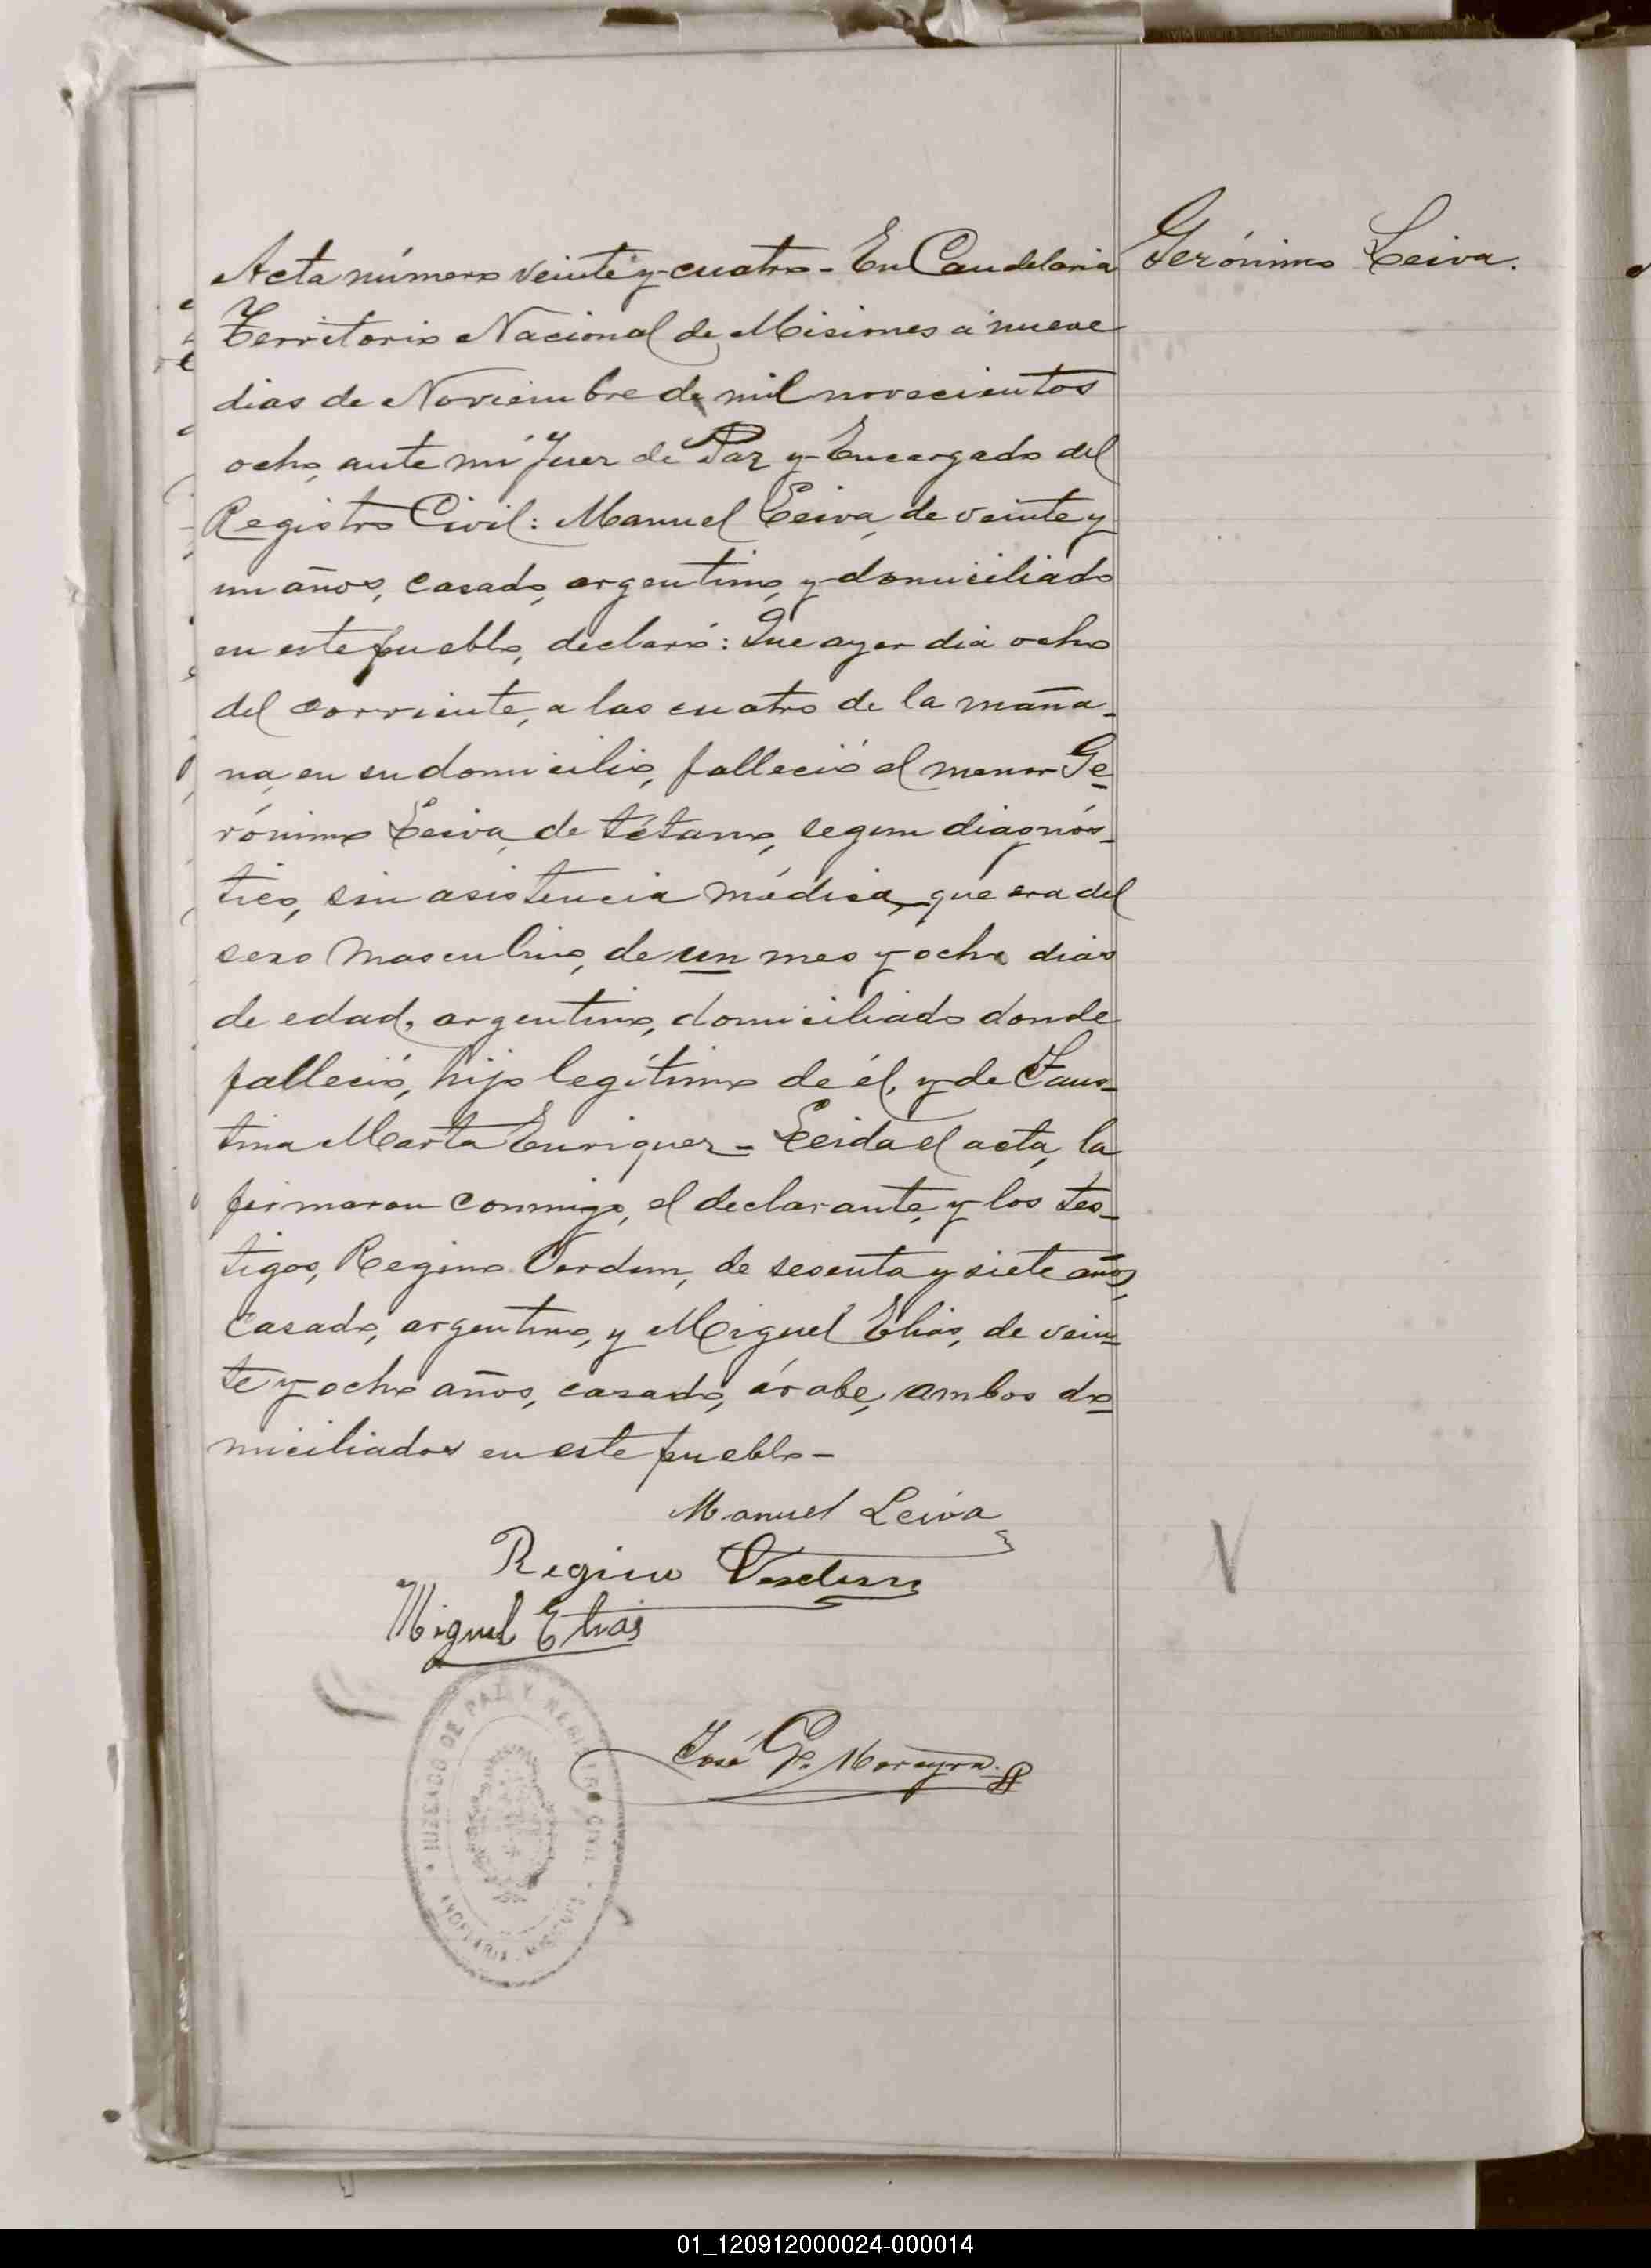 Gerónimo Leiva.
Acta número veinte y cuatro - En Candelaria
Territorio Nacional de Misiones a nueve
dias de Noviembre de mil novecientos
ocho, ante mí Juez de Paz y Encargado del
Registro Civil: Manuel Leiva, de veinte y
un años, casado, argentino, y domiciliado
en este pueblo, declaró: Que ayer dia ocho
del corriente, a las cuatro de la maña-
na, en su domicilio, falleció el menor Ge-
rónimo Leiva, de tétano, segun diagnós-
tico, sin asistencia médica, que era del
sexo masculino, de un mes y ocho dias
de edad, argentino, domiciliado donde
falleció, hijo legítimo de él, y de Faus-
tina Marta Enriquez - Leida el acta, la
firmaron conmigo, el declarante, y los tes-
tigos, Regino Verdun, de sesenta y siete años,
casado, argentino, y Miguel Elias, de vein-
te y ocho años, casado, árabe, ambos do-
miciliados en este pueblo -
Manuel Leiva
Regino Verdun
Miguel Elias
José G. Moreyra
JUZGADO DE PAZ Y REGISTRO CIVIL
CANDELARIA - MISIONES
01_120912000024-000014